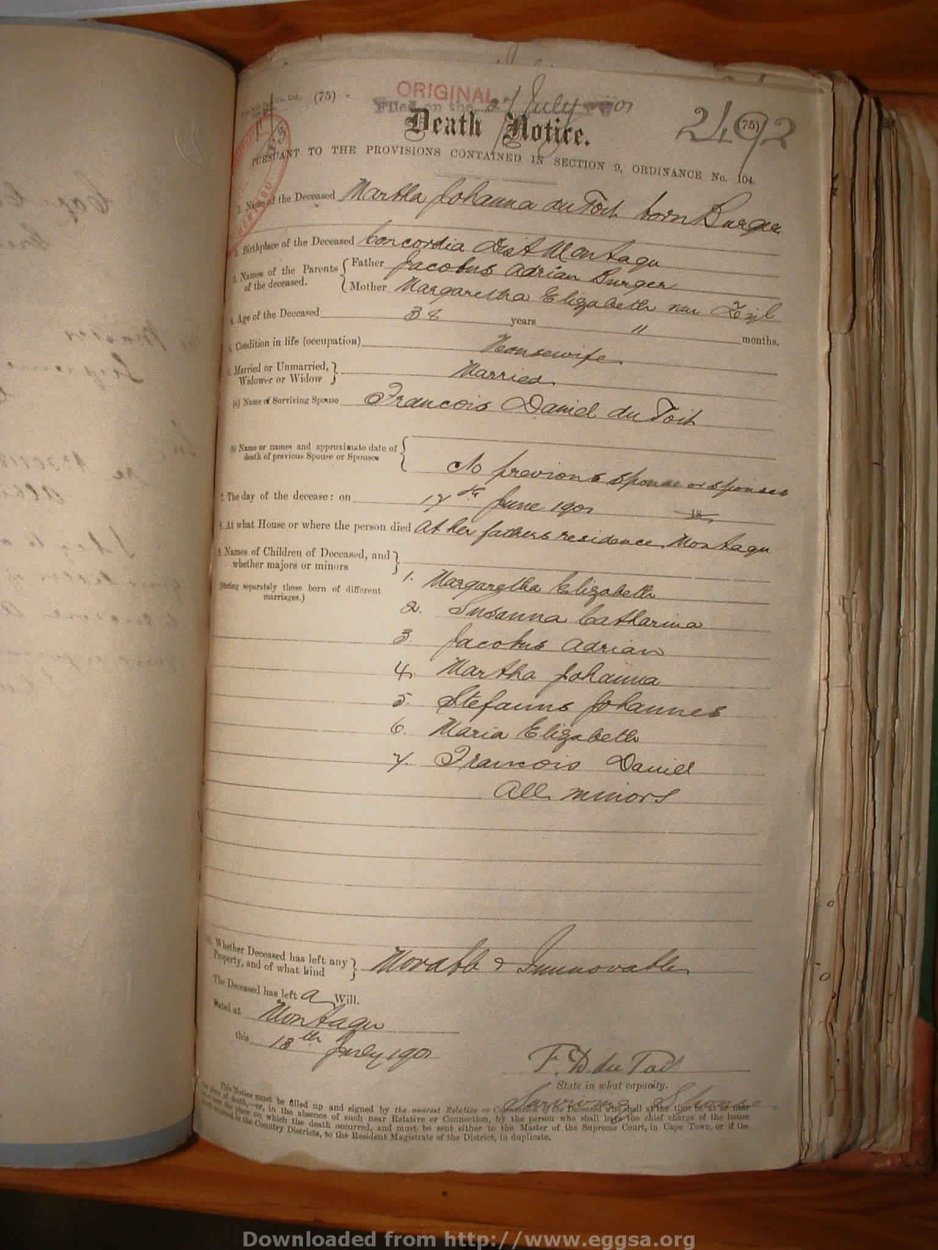 (75)
ORIGINAL
Filed on the 27 July 1901
Death Notice.
(75)
2492
PURSUANT TO THE PROVISIONS CONTAINED IN SECTION 9, ORDINANCE No. 104.
1. Name of the Deceased Martha Johanna du Toit born Burger
2. Birthplace of the Deceased Concordia Dist Montagu
3. Names of the Parents of the deceased. { Father Jacobus Adrian Burger
Mother Margaretha Elizabeth van Zijl
4. Age of the Deceased 38 years 11 months.
5. Condition in life (occupation) Housewife
6. Married or Unmarried, Widower or Widow } Married
(a) Name of Surviving Spouse Francois Daniel du Toit
(b) Name or names and approximate date of death of previous Spouse or Spouses { No previous spouse or spouses
7. The day of the decease: on 17th June 1901 18
8. At what House or where the person died At her fathers residence, Montagu
9. Names of Children of Deceased, and whether majors or minors }
(Stating separately those born of different marriages.)
1. Margaretha Elizabeth
2. Susanna Catharina
3 Jacobus Adrian
4. Martha Johanna
5. Stefanus Johannes
6. Maria Elizabeth
7. Francois Daniel
All minors
10. Whether Deceased has left any Property, and of what kind } Movable & Immovable
The Deceased has left a Will.
Dated at Montagu
this 18th July 1901
F. D du Toit
State in what capacity.
Surviving Spouse
This Notice must be filled up and signed by the nearest Relative or Connection of the Deceased who shall at the time be at or near
the place of death,—or, in the absence of such near Relative or Connection, by the person who shall have the chief charge of the house
in or the place on which the death occurred, and must be sent either to the Master of the Supreme Court, in Cape Town, or if the
in the Country Districts, to the Resident Magistrate of the District, in duplicate.
Downloaded from http://www.eggsa.org